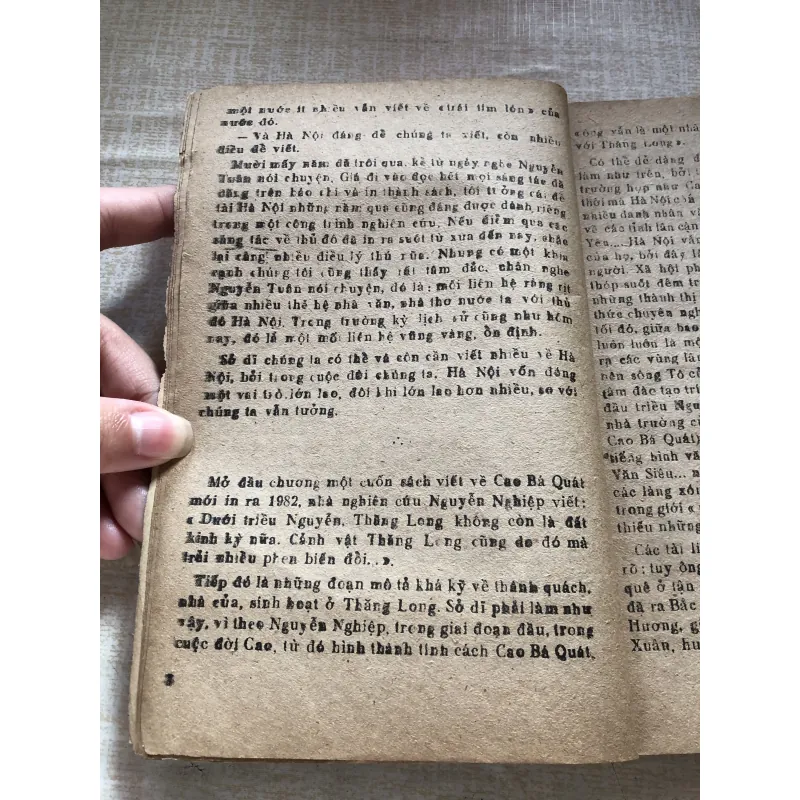 một nước ít nhiều vẫn viết về «trái tim lớn» của
nước đó.
— Và Hà Nội đáng để chúng ta viết, còn nhiều
điều để viết.
Mười mấy năm đã trôi qua, kể từ ngày nghe Nguyễn
Tuân nói chuyện. Giá đi vào đọc hết mọi sáng tác đã
đăng trên báo chí và in thành sách, tôi tưởng cái đề
tài Hà Nội những năm qua cũng đáng được dành riêng
trong một công trình nghiên cứu. Nếu điểm qua các
sáng tác về thủ đô đã in ra suốt từ xưa đến nay, chắc
lại càng nhiều điều lý thú nữa. Nhưng có một khía
cạnh chúng tôi cũng thấy rất tâm đắc, chăn nghe
Nguyễn Tuân nói chuyện, đó là: mối liên hệ ràng rịt
giữa nhiều thế hệ nhà văn, nhà thơ nước ta với thủ
đô Hà Nội. Trong trường kỳ lịch sử cũng như hôm
nay, đó là một mối liên hệ vững vàng, ổn định.
Sở dĩ chúng ta có thể và còn cần viết nhiều về Hà
Nội, bởi trong cuộc đời chúng ta, Hà Nội vốn đóng
một vai trò lớn lao, đôi khi lớn lao hơn nhiều, so với
chúng ta vẫn tưởng.
Mở đầu chương một cuốn sách viết về Cao Bá Quát
mới in ra 1982, nhà nghiên cứu Nguyễn Nghiệp viết:
« Dưới triều Nguyễn, Thăng Long không còn là đất
kinh kỳ nữa. Cảnh vật Thăng Long cũng do đó mà
trải nhiều phen biến đổi...».
Tiếp đó là những đoạn mô tả khá kỹ về thành quách,
nhà cửa, sinh hoạt ở Thăng Long. Sở dĩ phải làm như
vậy, vì theo Nguyễn Nghiệp, trong giai đoạn đầu, trong
cuộc đời Cao, từ đó hình thành tính cách Cao Bá Quát,
8
công vẫn là một nhà
với Thăng Long».
Có thể dễ dàng đ
làm như trên, bởi t
trường hợp như Ca
mà Hà Nội chả
nhiều danh nhân v
các tỉnh lân cận
Yên.... Hà Nội vẫ
của họ, bởi đây l
người. Xã hội ph
thóp suốt đêm tr
những thành thị
thức chuyên ngh
tối đó, giữa bao
luôn luôn là mộ
ra các vùng lân
nên sông Tô cổ
tâm đào tạo trí
đầu triều Ngu
nhà trường c
Cao Bá Quát)
tiếng bình vă
Văn Siêu... n
các làng xón
trong giới «
thiếu những
Các tài li
rõ: tuy ông
quê ở tận
đã ra Bắc
Hương, g
Xuân, hu